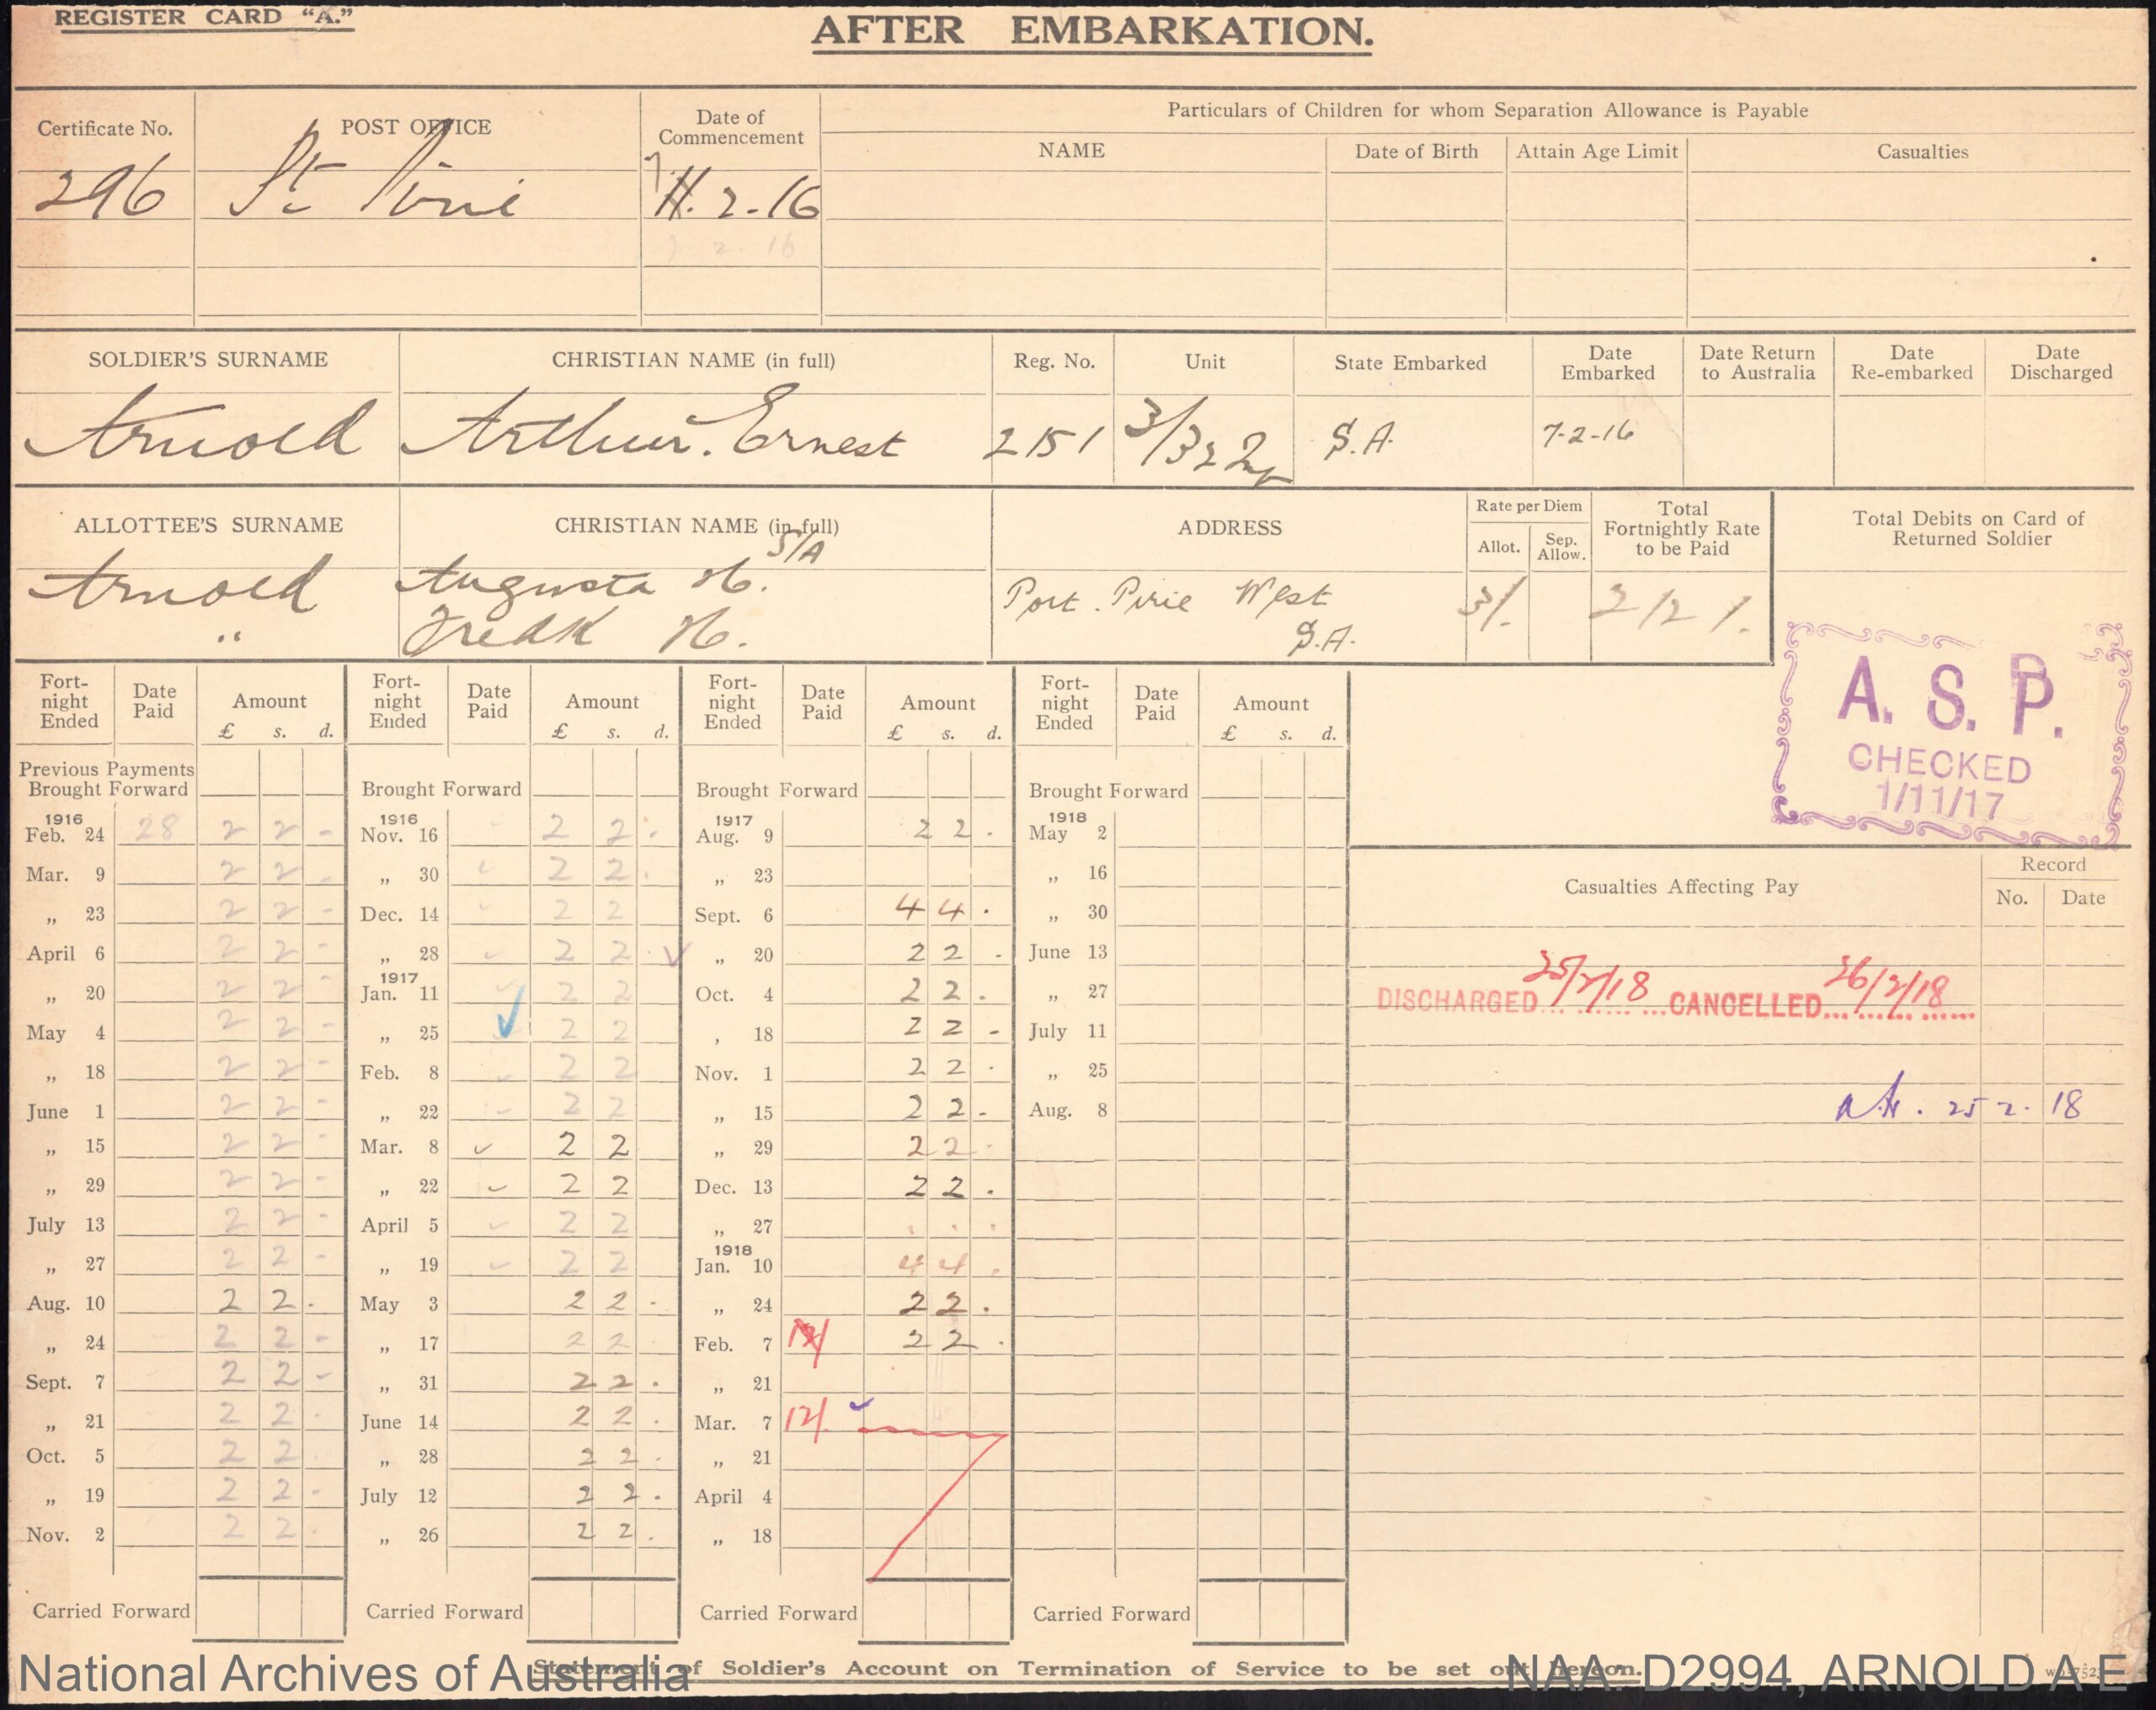 REGISTER CARD “A.”
AFTER EMBARKATION.
Certificate No.
POST OFFICE
Date of Commencement
Particulars of Children for whom Separation Allowance is Payable
NAME
Date of Birth
Attain Age Limit
Casualties
296
Pt Pirie
11.2.16
7 2. 16
SOLDIER'S SURNAME
CHRISTIAN NAME (in full)
Reg. No.
Unit
State Embarked
Date Embarked
Date Return to Australia
Date Re-embarked
Date Discharged
Arnold
Arthur. Ernest
2151
3/32
S.A.
7-2-16
ALLOTTEE'S SURNAME
CHRISTIAN NAME (in full)
ADDRESS
Rate per Diem
Allot.
Sep. Allow.
Total Fortnightly Rate to be Paid
Total Debits on Card of Returned Soldier
S/A
Arnold
Augusta H.
Port. Pirie West
3/.
2/2/.
"
Fredk H.
S.A.
A. S. P.
CHECKED
1/11/17
Fort-night Ended
Date Paid
Amount
£ s. d.
Previous Payments Brought Forward
1916
Feb. 24 28 2 2 -
Mar. 9 2 2 -
„ 23 2 2 -
April 6 2 2 -
„ 20 2 2 -
May 4 2 2 -
„ 18 2 2 -
June 1 2 2 -
„ 15 2 2 -
„ 29 2 2 -
July 13 2 2 -
„ 27 2 2 -
Aug. 10 2 2 .
„ 24 2 2 -
Sept. 7 2 2 -
„ 21 2 2 .
Oct. 5 2 2
„ 19 2 2 -
Nov. 2 2 2 .
Carried Forward
Fort-night Ended
Date Paid
Amount
£ s. d.
Brought Forward
1916
Nov. 16 2 2 .
„ 30 2 2 .
Dec. 14 2 2
„ 28 2 2 .
1917
Jan. 11 2 2
„ 25 2 2
Feb. 8 2 2
„ 22 2 2
Mar. 8 2 2
„ 22 2 2
April 5 2 2
„ 19 2 2
May 3 2 2 .
„ 17 2 2
„ 31 2 2 .
June 14 2 2 .
„ 28 2 2 .
July 12 2 2 .
„ 26 2 2 .
Carried Forward
Fort-night Ended
Date Paid
Amount
£ s. d.
Brought Forward
1917
Aug. 9 2 2 .
„ 23
Sept. 6 4 4 .
„ 20 2 2 -
Oct. 4 2 2 .
, 18 2 2 -
Nov. 1 2 2 .
„ 15 2 2 -
„ 29 2 2 .
Dec. 13 2 2 .
„ 27 . . .
1918
Jan. 10 4 4 .
„ 24 2 2 .
Feb. 7 2 2 .
„ 21
Mar. 7 12/.
„ 21
April 4
„ 18
Carried Forward
Fort-night Ended
Date Paid
Amount
£ s. d.
Brought Forward
1918
May 2
„ 16
„ 30
June 13
„ 27
July 11
„ 25
Aug. 8
Carried Forward
Casualties Affecting Pay
Record
No.
Date
DISCHARGED 25/2/18 CANCELLED 26/2/18
25 2. 18
Statement of Soldier's Account on Termination of Service to be set out hereon.
National Archives of Australia
NAA: D2994, ARNOLD A E